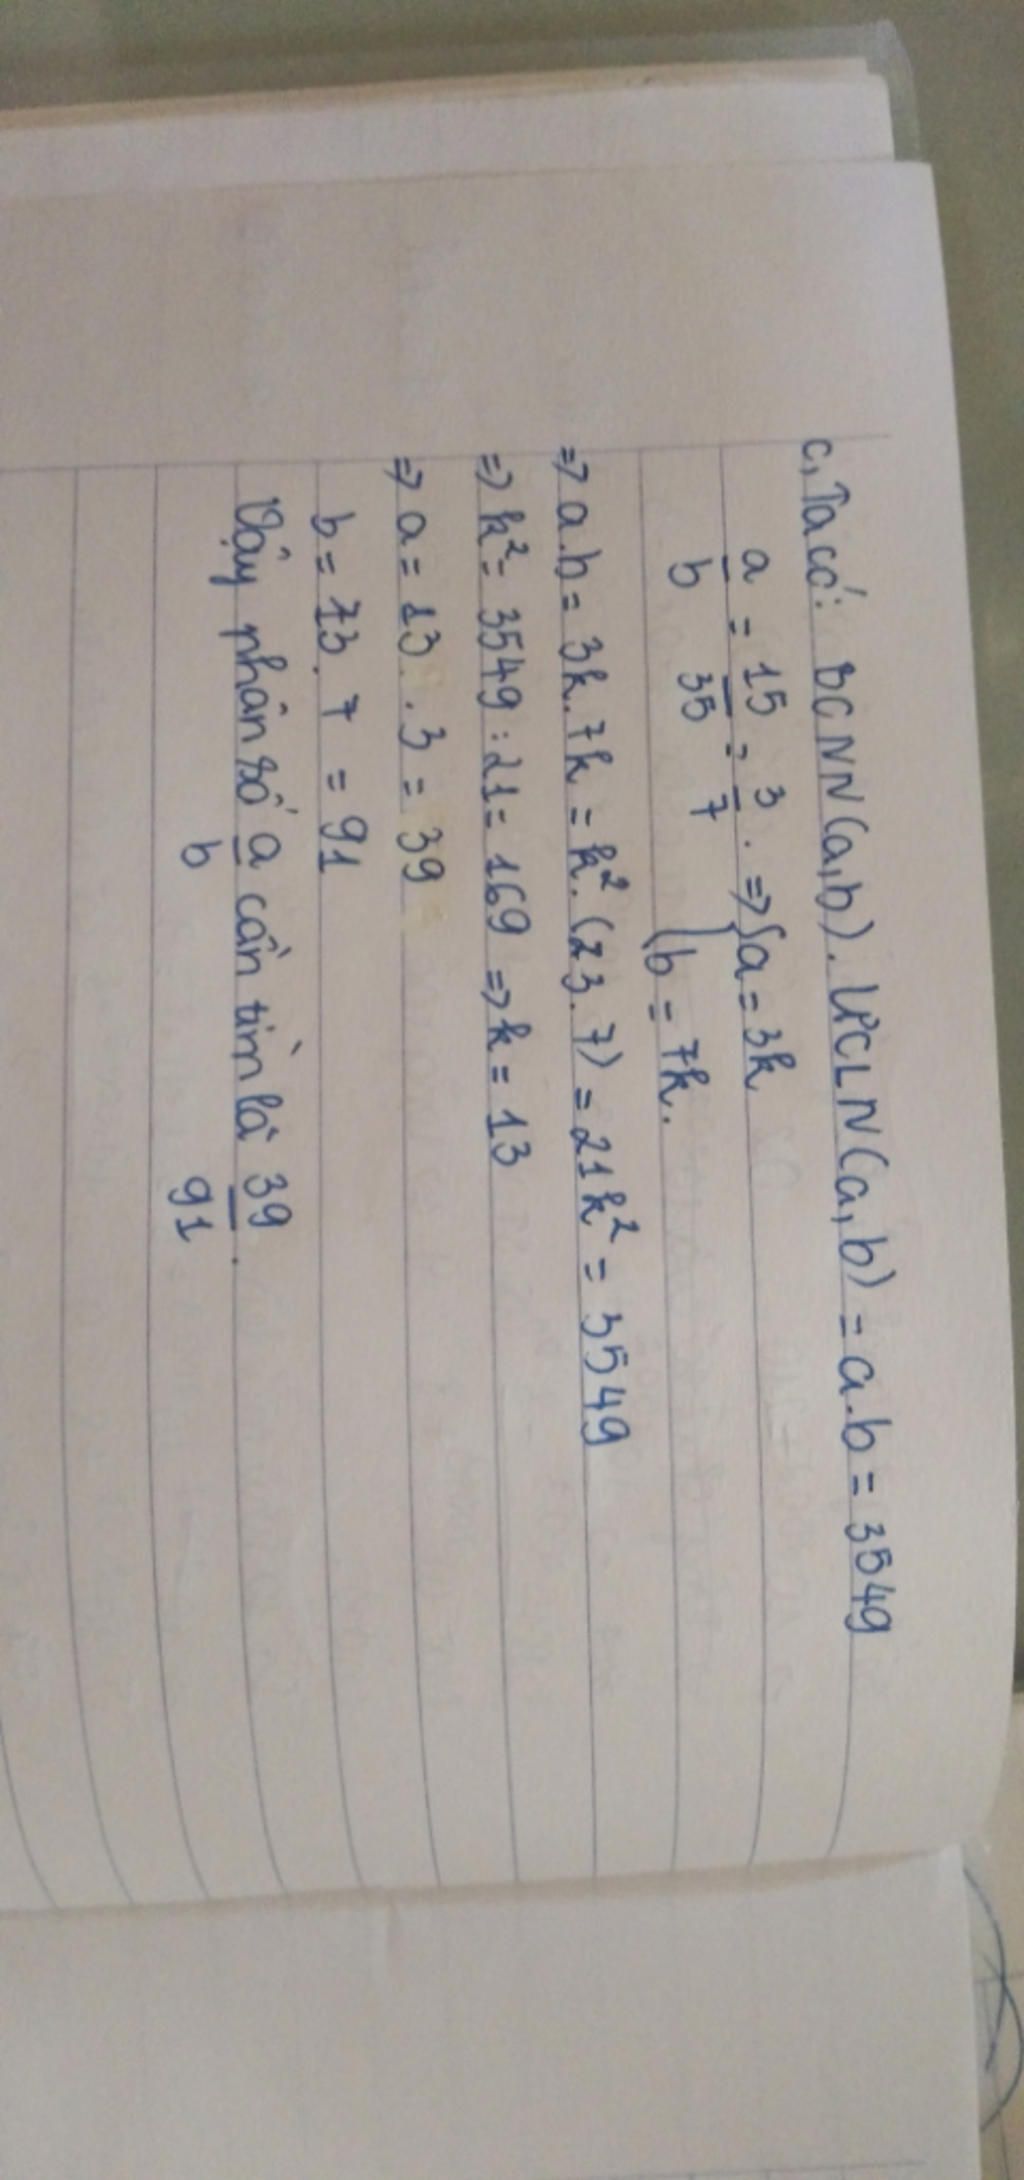 c, Ta có: BCNN(a,b). ƯCLN(a,b) = a.b = 3549
a/b = 15/35 = 3/7. => { a = 3k
b = 7k.
=> a.b = 3k.7k = k². (23.7) = 21k² = 3549
=> k² = 3549 : 21 = 169 => k = 13
=> a = 13 . 3 = 39
b = 13 . 7 = 91
Vậy phân số a/b cần tìm là 39/91.